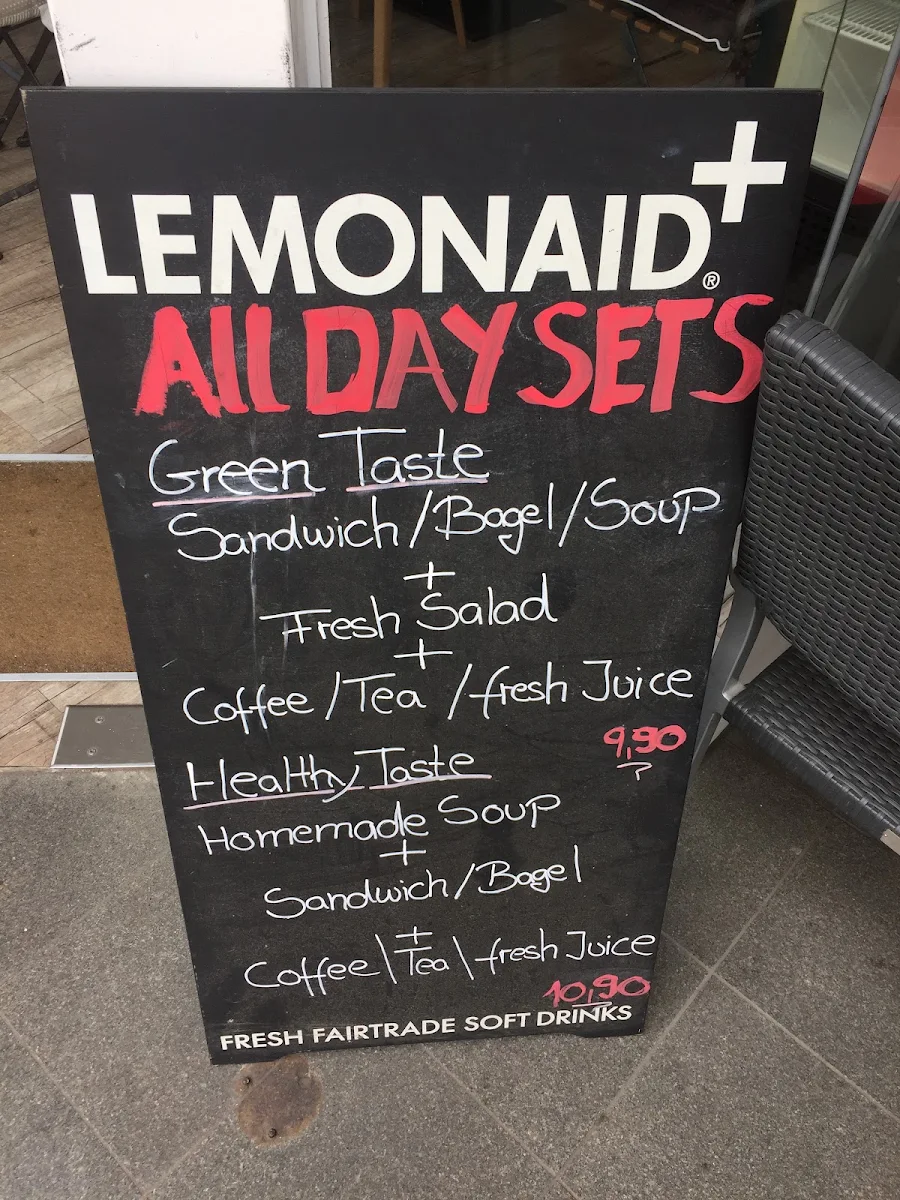 LEMONAID+®
All DAY SETS
Green Taste
Sandwich/Bagel/Soup
+
Fresh Salad
+
Coffee/Tea/fresh Juice
9,90
Healthy Taste
Homemade Soup
+
Sandwich/Bagel
+
Coffee\Tea\fresh Juice
10,90
FRESH FAIRTRADE SOFT DRINKS